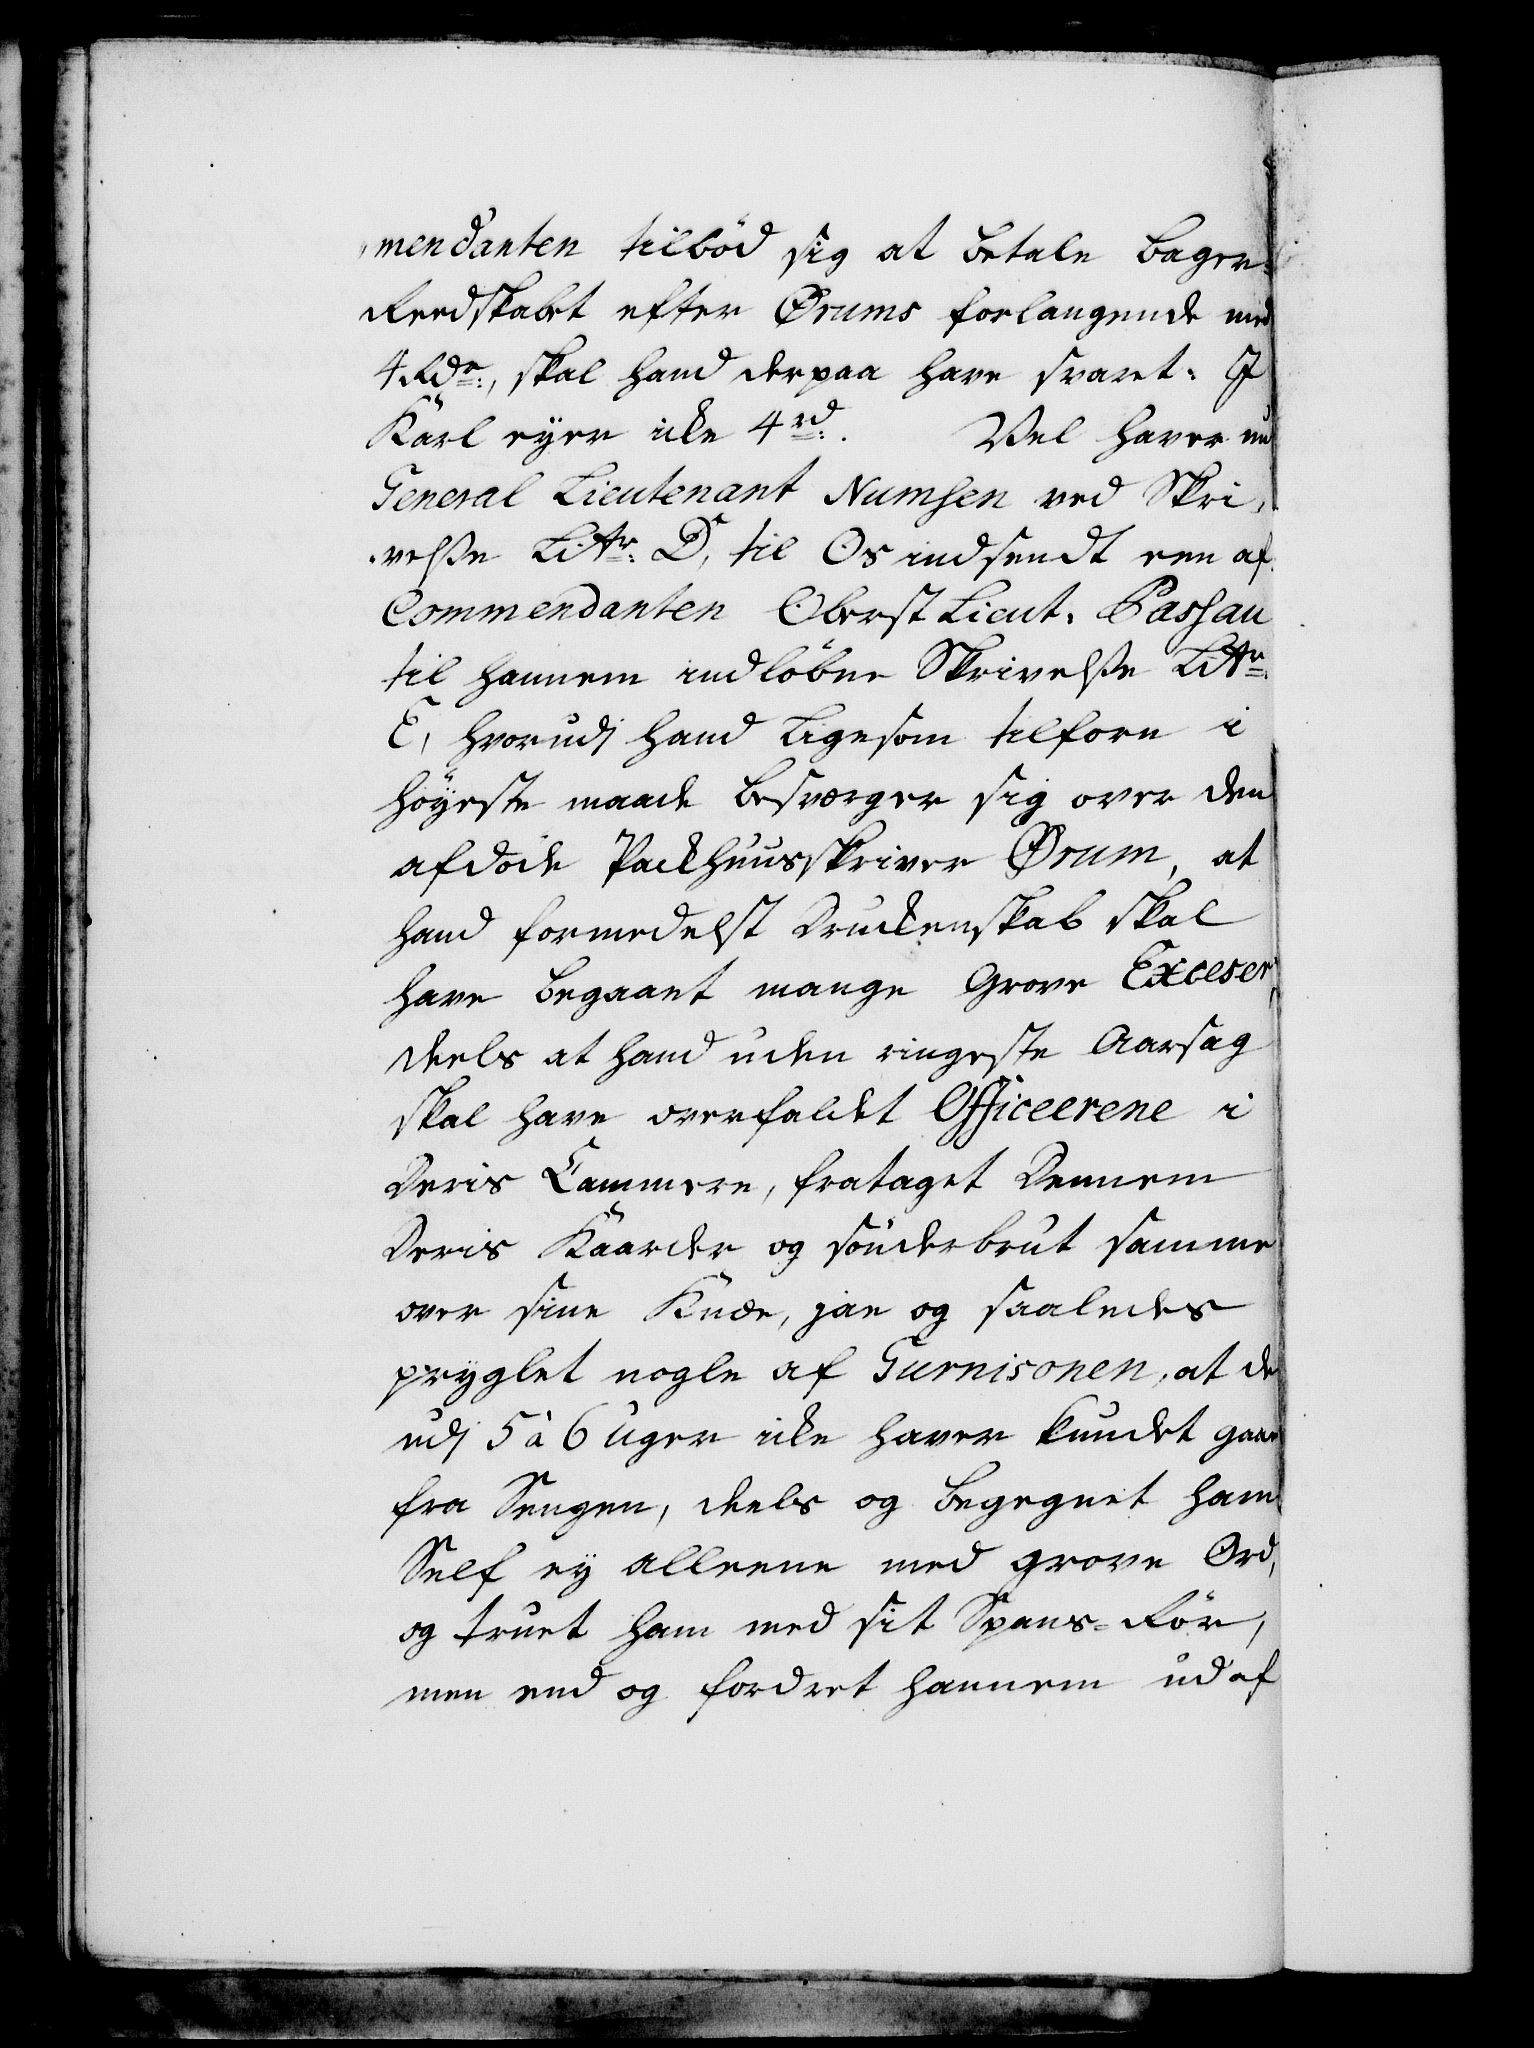 mendanten tilbød sig at betale bager-
Reedskabet efter Ørums forlangende med
4 Rdr:, skal hand derpaa have svaret: I
Karl eyer icke 4 rd:. Vel haver nu
General Lieutenant Numsen ved Skri-
velsse Litr: D, til Os indsendt een af
Commendanten Oberst Lieut: Passau
til hannem indløbne Skrivelsse Litr:
E, hvorudj hand Ligesom tilforn i
høyeste maade besværger sig over den
afdøde Packhuusskriver Ørum, at
hand formedelst Druckenskab skal
have begaaet mange Grove Exceser,
deels at hand uden ringeste Aarsag
skal have overfaldet Officeerene i
Deris Cammere, frataget Dennem
Deris Kaarder og sønderbrut samme
over sine Knæe, jae og saaledes
pryglet nogle af Gurnisonen, at de
udj 5 à 6 Uger icke haver kundet gaae
fra Sengen, deels og begegnet ham
Self ey alleene med grove Ord,
og truet ham med sit Spans-Rør,
men end og fordret hannem ud af